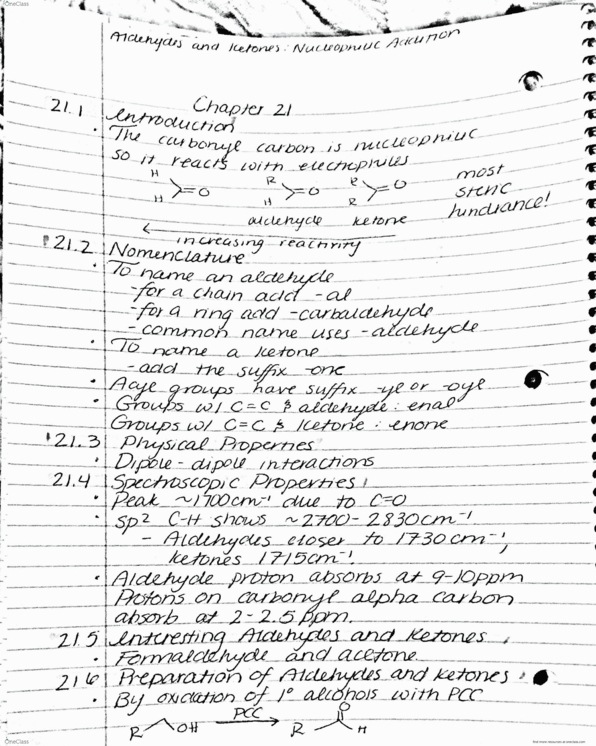 OneClass
find more resources at oneclass.com
Aldehydes and Ketones: Nucleophilic Addition
Chapter 21
21.1 Introduction
• The carbonyl carbon is nucleophilic
so it reacts with electrophiles
H R R
H =O H =O R =O
most
steric
hindrance!
aldehyde ketone
increasing reactivity
21.2 Nomenclature
• To name an aldehyde
-for a chain add -al
-for a ring add -carbaldehyde
- common name uses -aldehyde
• To name a ketone
-add the suffix -one
• Acyl groups have suffix -yl or -oyl
• Groups w/ C=C & aldehyde: enal
Groups w/ C=C & ketone: enone
21.3 Physical Properties
• Dipole-dipole interactions
21.4 Spectroscopic Properties
• Peak ~1700cm⁻¹ due to C=O
• sp² C-H shows ~2700-2830cm⁻¹
- Aldehydes closer to 1730cm⁻¹,
ketones 1715cm⁻¹.
• Aldehyde proton absorbs at 9-10ppm
Protons on carbonyl alpha carbon
absorb at 2-2.5 ppm.
21.5 Interesting Aldehydes and Ketones
• Formaldehyde and acetone
21.6 Preparation of Aldehydes and Ketones
• By oxidation of 1° alcohols with PCC
R OH PCC R O H
OneClass
find more resources at oneclass.com